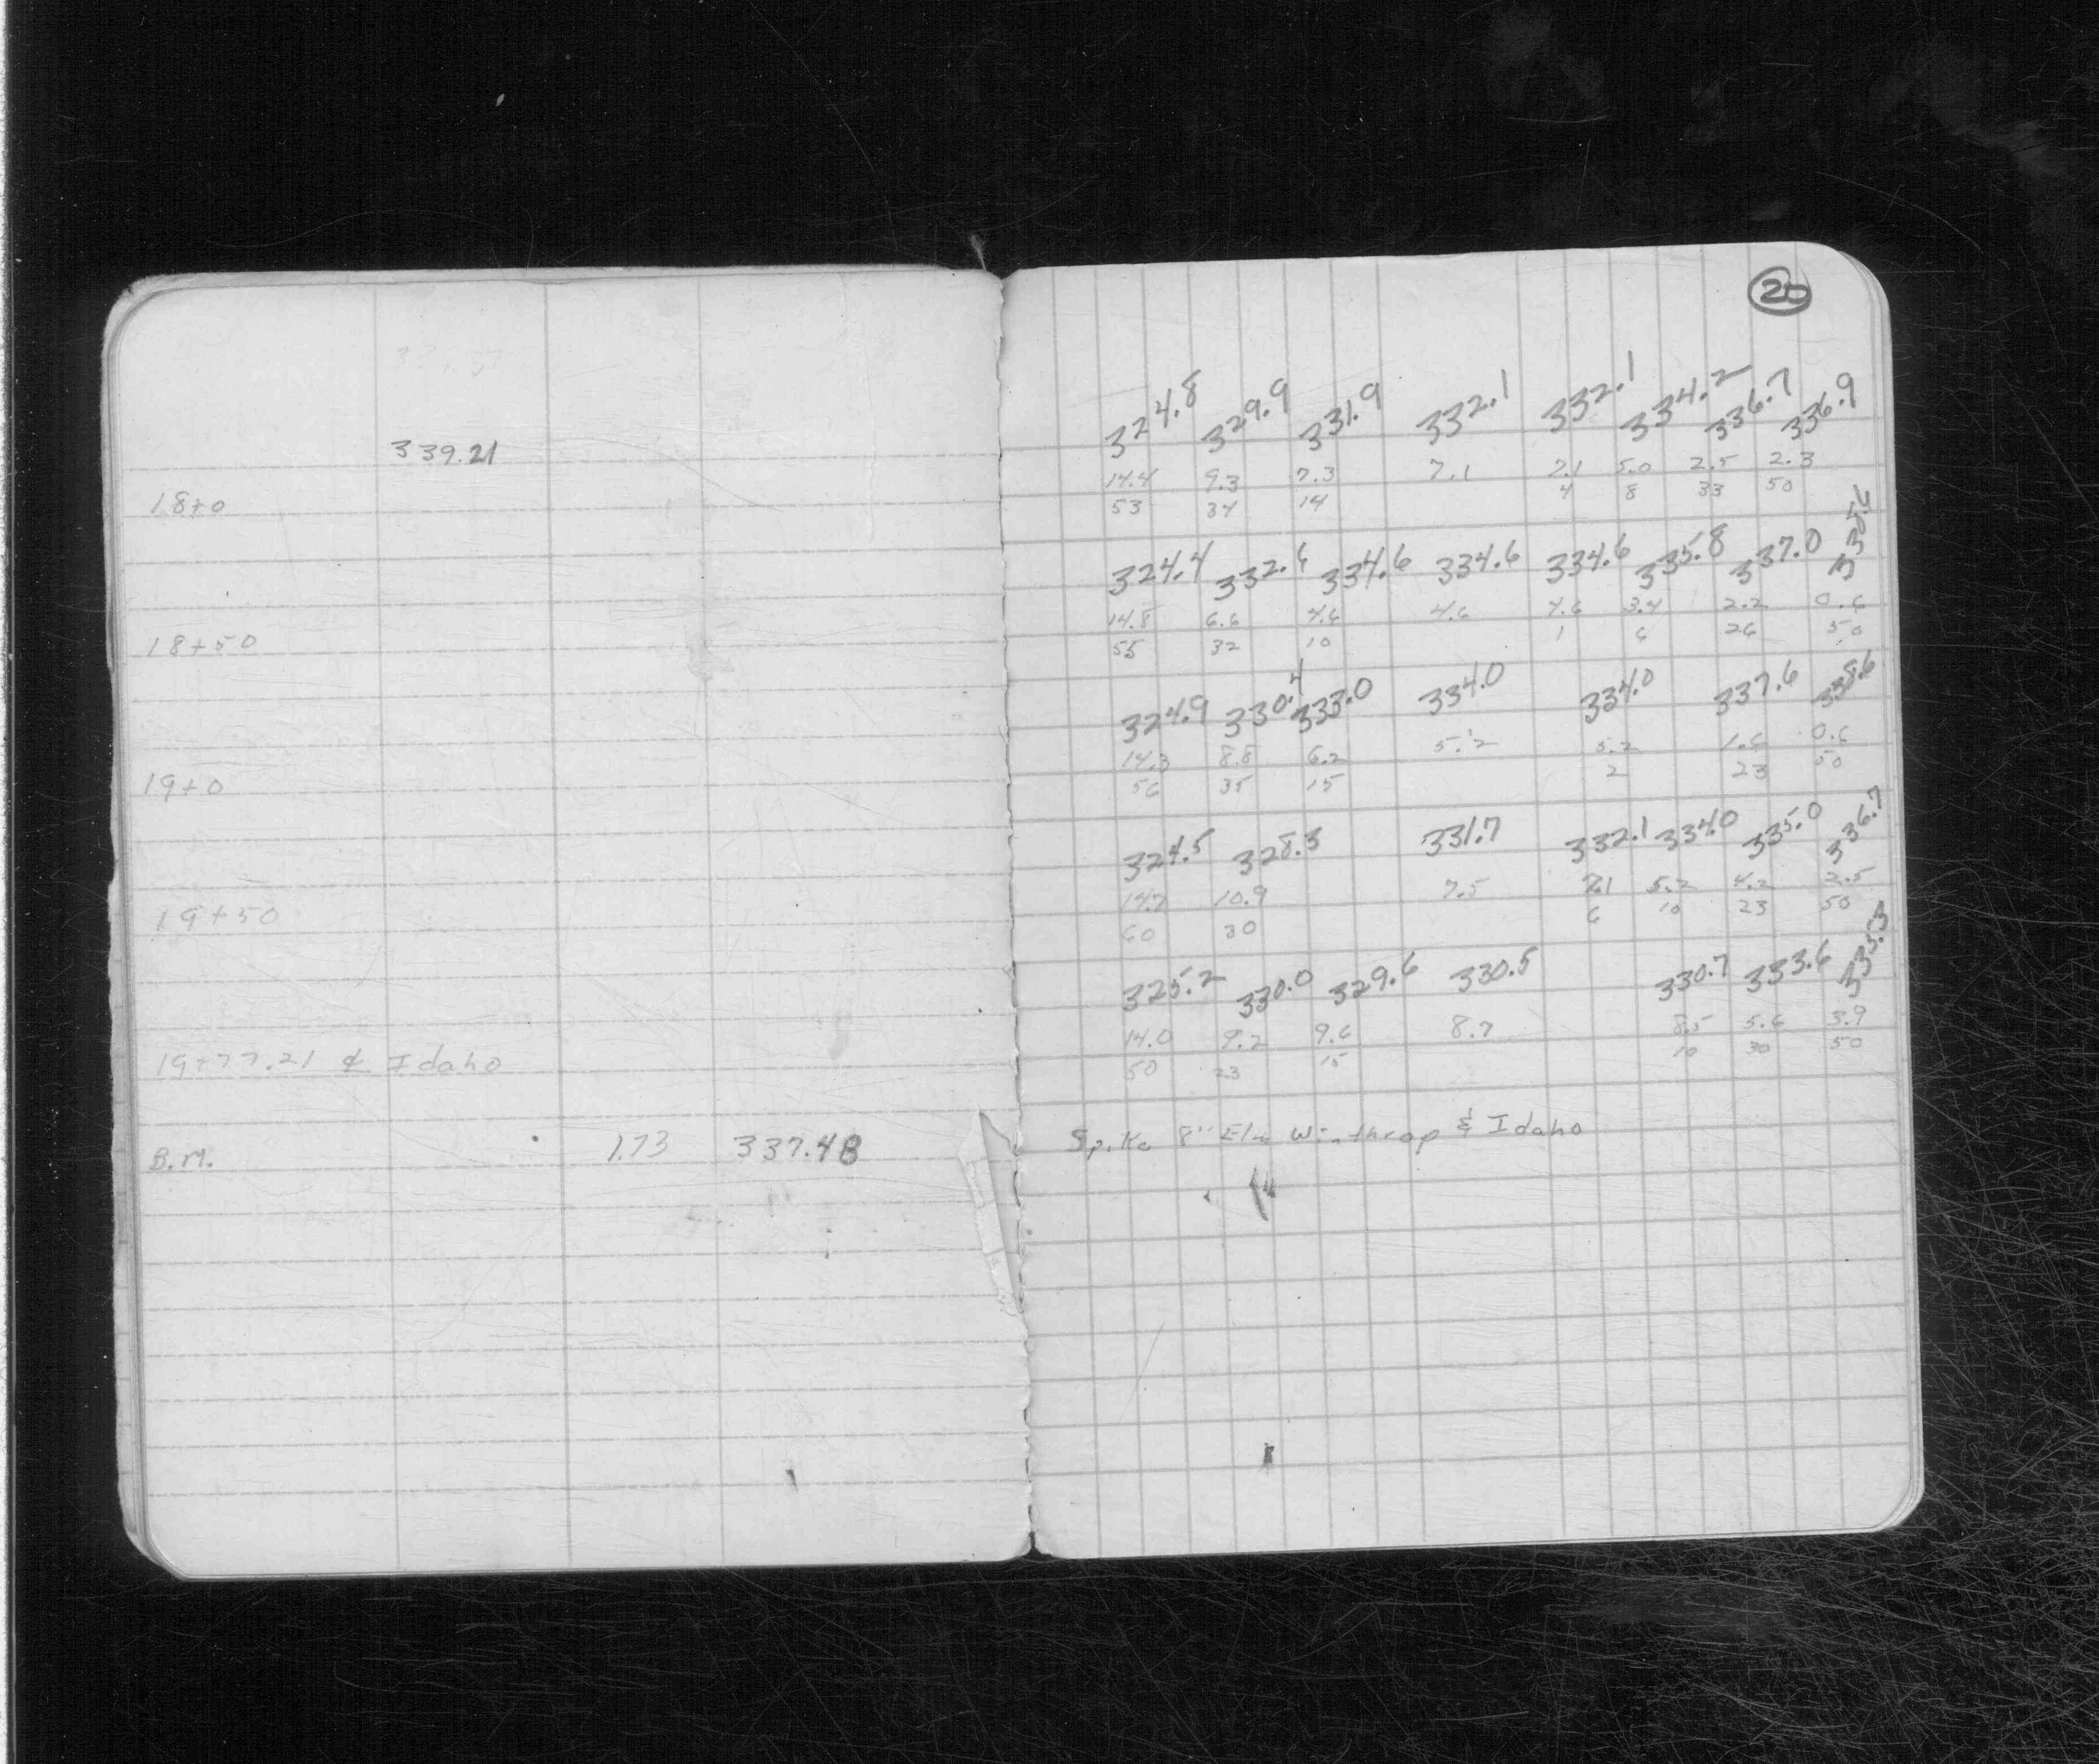 20
339.21
324.8 329.9 331.9 332.1 332.1 334.2 336.7 336.9
14.4 9.3 7.3 7.1 7.1 5.0 2.5 2.3
18+0 53 34 14 4 8 33 50
324.4 332.6 334.6 334.6 334.6 335.8 337.0
14.8 6.6 4.6 4.6 4.6 3.4 2.2 0.6
18+50 55 32 10 1 6 26 50
324.9 330.4 333.0 334.0 334.0 337.6 338.6
14.3 8.8 6.2 5.2 5.2 1.6 0.6
19+0 56 35 15 2 23 50
324.5 328.3 331.7 332.1 334.0 335.0 336.7
14.7 10.9 7.5 7.1 5.2 4.2 2.5
19+50 60 30 6 10 23 50
325.2 330.0 329.6 330.5 330.7 333.6 335.3
14.0 9.2 9.6 8.7 8.5 5.6 3.9
19+77.21 ¢ Idaho 50 23 15 10 30 50
B.M. 1.73 337.48 Spike 8" Elm Winthrop & Idaho